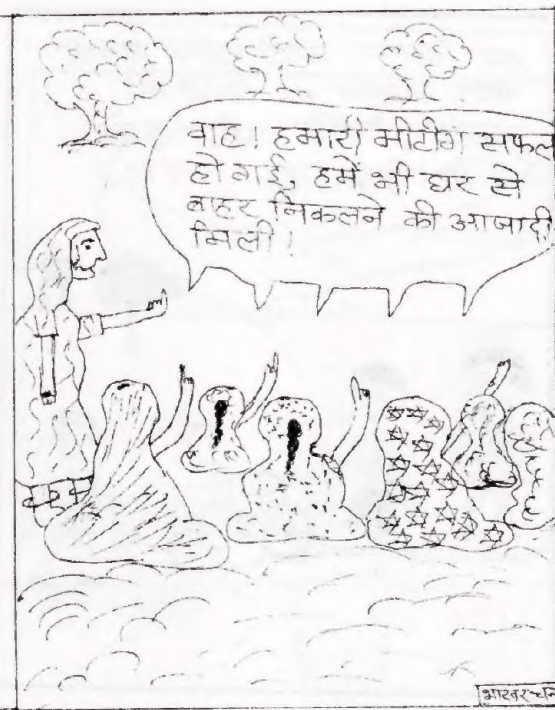 वाह! हमारी मीटींग सफल
हो गई, हमें भी घर से
बाहर निकलने की आजादी
मिली!